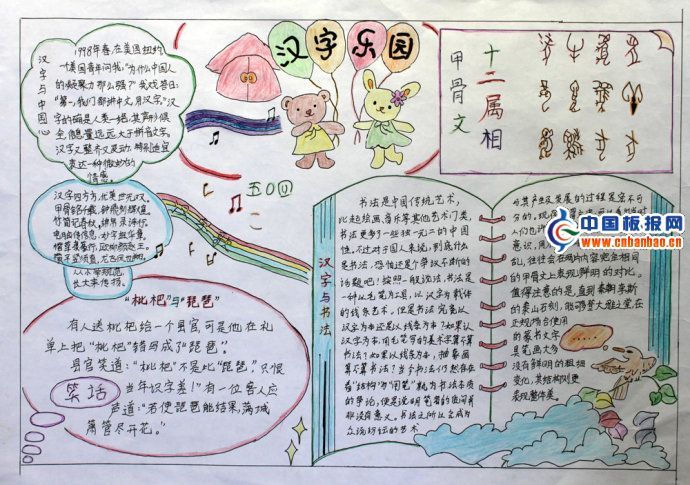 汉字与中国心
1998年春在美国纽约
一个美国青年问我:“为什么中国人
的凝聚力那么强?”我戏答曰:
“第一,我们都讲中文,用汉字。”汉
字的确是人类一绝:其声形候
全,信息量远远大于拼音文字。
汉字又整齐又灵动,特别适宜
表达一种微妙的
情感。
汉字乐园
十二属相
甲骨文
汉字四方方,优美世无双。
甲骨铭
从小学规范,
长大来传扬。
五〇(1)
“枇杷”与“琵琶”
有人送枇杷给一个县官,可是他在礼
单上把“枇杷”错写成了“琵琶”。
县官笑道:“枇杷不是此“琵琶”,只恨
当年识字差!”有一位客人应
声道:“若使琵琶能结果,满城
箫管尽开花。”
笑话
汉字与书法
书法是中国传统艺术,
比起绘画、音乐等其他艺术门类,
书法更多了一些独一无二的中国
性。不过对于国人来说,到底什么
是书法,恐怕还是个争议不断的
话题吧!按照一般说法,书法是
一种以毛笔为工具,以汉字为载体
的线条艺术。但是书法究竟以
汉字为本还是以线条为本?如果以
汉字为本,用毛笔写的美术字算不算
书法?如果以线条为本,抽象画
算不算书法?当今书法仍然存在
着“结构”与“用笔”孰为书法本质
的争论,使是说明笔者的质问并
非没有意义。书法之所以会成为
众说纷纭的艺术
与其产生及发展的过程是密不可
分的。
的甲骨文上表现鲜明的对比。
值得注意的是,直到秦朝李斯
的泰山石刻,能够登大雅之堂在
正规场合使用
的篆书文字
其笔画大多
没有鲜明的粗细
变化,其结构则更
表现整体美。
中国板报网
www.cnbanbao.cn